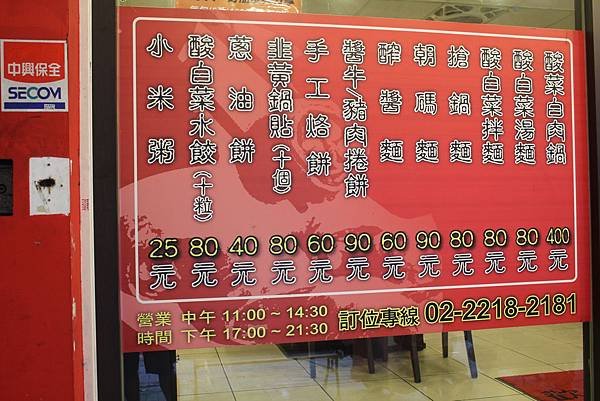 中興保全
SECOM
酸菜白肉鍋 400元
酸白菜湯麵 80元
酸白菜拌麵 80元
搶鍋麵 80元
朝碼麵 90元
醡醬麵 60元
醬牛/豬肉捲餅 90元
手工烙餅 60元
韭黃鍋貼(十個) 80元
蔥油餅 40元
酸白菜水餃(十粒) 80元
小米粥 25元
營業時間 中午 11:00~14:30
下午 17:00~21:30
訂位專線 02-2218-2181